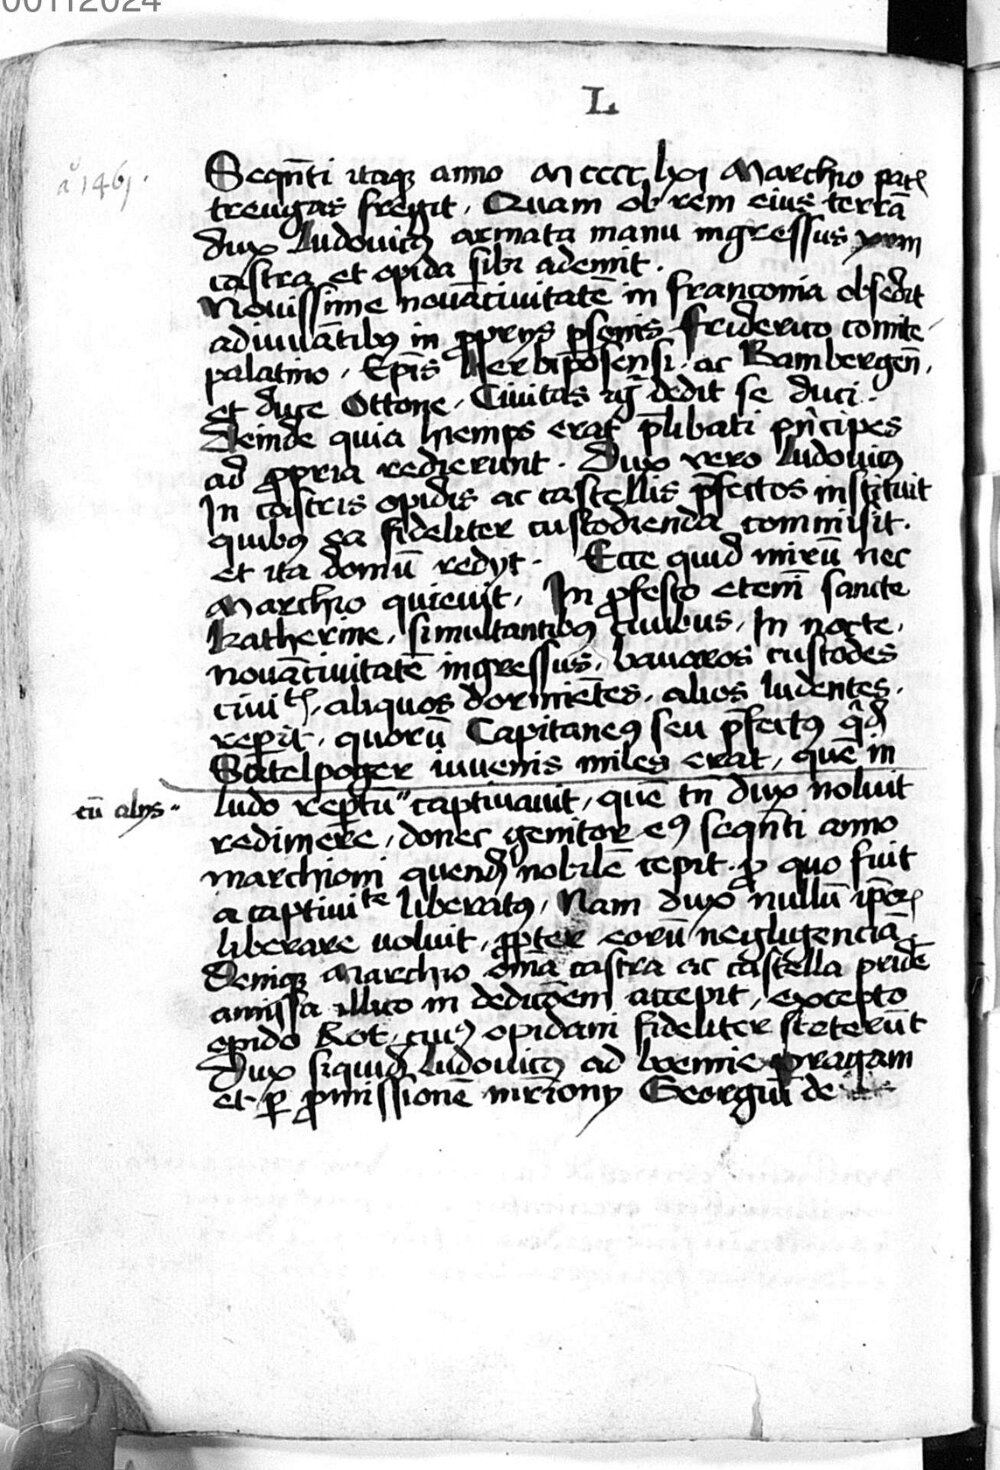 00112024
L
a° 1461.
Seqn̄ti itaqꝫ anno Mcccc lxi Marchio
treugas fregit. Quam ob rem eius terrā
dux Ludouicꝰ armata manu ingressus
castra et opida sibi ademit.
Nouissime nouāciuitatē in franconia obsedit
adiuuātibꝰ in ꝓprijs ꝑsonis friderico comite
palatino. Ep̄is Herbipolensi. ac Bambergen̄.
et duce Ottone. Ciuitas dedit se duci.
Deinde quia hiemps erat p̄libati prīcipes
ad ꝓpria redierunt. Dux vero Ludouicꝰ
In castris opidis ac castellis p̄fectos instituit
quibꝰ ea fideliter custodienda commisit.
et ita domū redyt. Ecce quid mirū nec
Marchio quieuit. In ꝓfesto etem̄ sancte
katherine. simultantibꝰ ciuibus. In nocte.
nouāciuitatē ingressus. bauaros custodes
ciuitꝭ. aliquos dormiētes. alios ludentes.
reperit. quorū Capitaneꝰ seu p̄fectꝰ qͥd
Satelpoger iuuenis miles erat. quē in
cū alijs
ludo reꝑtū captiuauit. quē tn̄ dux noluit
redimere. donec genitor eꝰ seqn̄ti anno
marchioni quendā nobilē cepit. ꝓ quo fuit
a captiuite liberatꝰ. Nam dux nullū ip̄oꝝ
liberare voluit. ꝓpter eorū negligenciā.
Deniqꝫ Marchio om̄ia castra ac castella pridē
amissa illico in dedicōem accepit. excepto
opido Rot. cuiꝰ opidani fideliter steterūt
Dux siquidē Ludouicꝰ ad boemie pragam
et ꝑ ꝓmissionē Georgii de